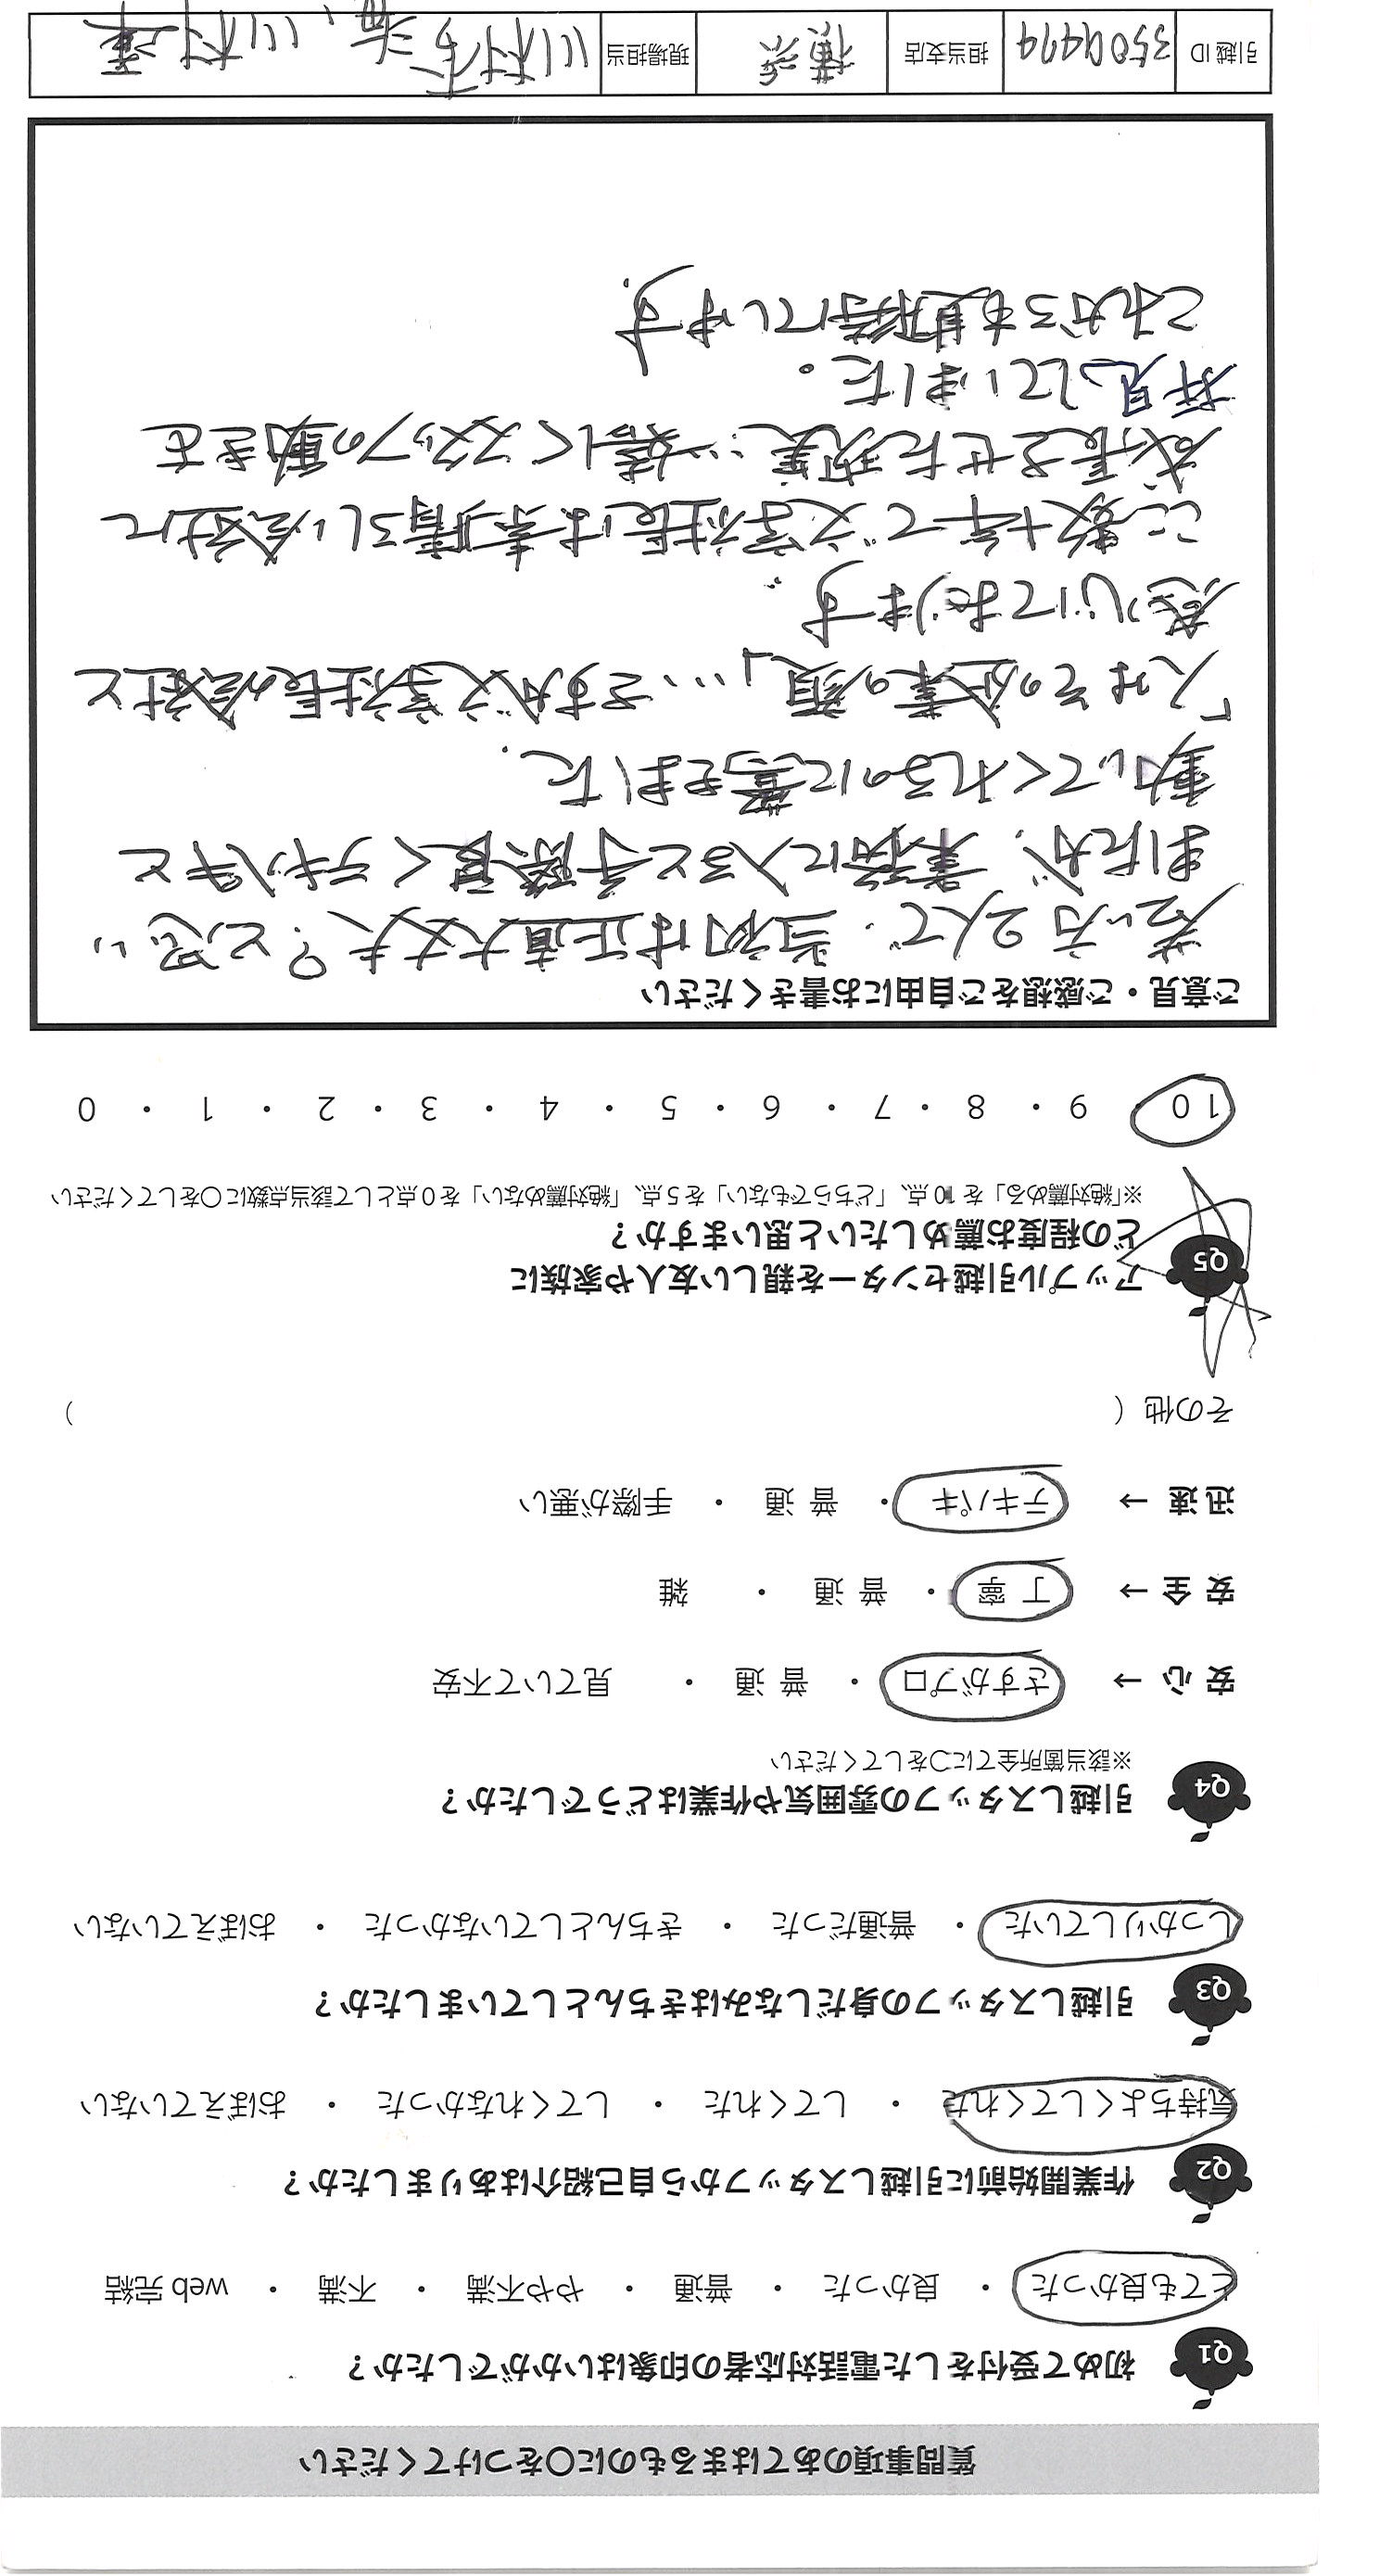 質問事項のあてはまるものに○をつけてください
Q1 初めて受付をした電話対応者の印象はいかがでしたか?
とても良かった ・ 良かった ・ 普通 ・ やや不満 ・ 不満 ・ web 完結
Q2 作業開始前に引越しスタッフから自己紹介はありましたか?
気持ちよくしてくれた ・ してくれた ・ してくれなかった ・ おぼえていない
Q3 引越しスタッフの身だしなみはきちんとしていましたか?
しっかりしていた ・ 普通だった ・ きちんとしていなかった ・ おぼえていない
Q4 引越しスタッフの雰囲気や作業はどうでしたか?
※該当箇所全てに○をしてください
安 心 → さすがプロ ・ 普 通 ・ 見ていて不安
安 全 → 丁 寧 ・ 普 通 ・ 雑
迅 速 → テキパキ ・ 普 通 ・ 手際が悪い
その他 ( )
Q5 アップル引越センターを親しい友人や家族に
どの程度お薦めしたいと思いますか?
※「絶対薦める」を 10 点、「どちらでもない」を 5 点、「絶対薦めない」を 0 点として該当点数に○をしてください
10 9 ・ 8 ・ 7 ・ 6 ・ 5 ・ 4 ・ 3 ・ 2 ・ 1 ・ 0
ご意見・ご感想をご自由にお書きください
若い方2人で、当初は正直大丈夫?と思い
ましたが、業務に入ると手際良くテキパキと
動いてくれるのに驚きました。
「人はその企業の顔」…ですが文字社長の会社と
感じております。
ここ数十年で文字社長は素晴らしい会社に
成長させた現実…嬉しくスタッフの動きを
拝見していました。
これからも期待しています。
引越 ID 3509479 担当支店 横浜 現場担当 川村 川村